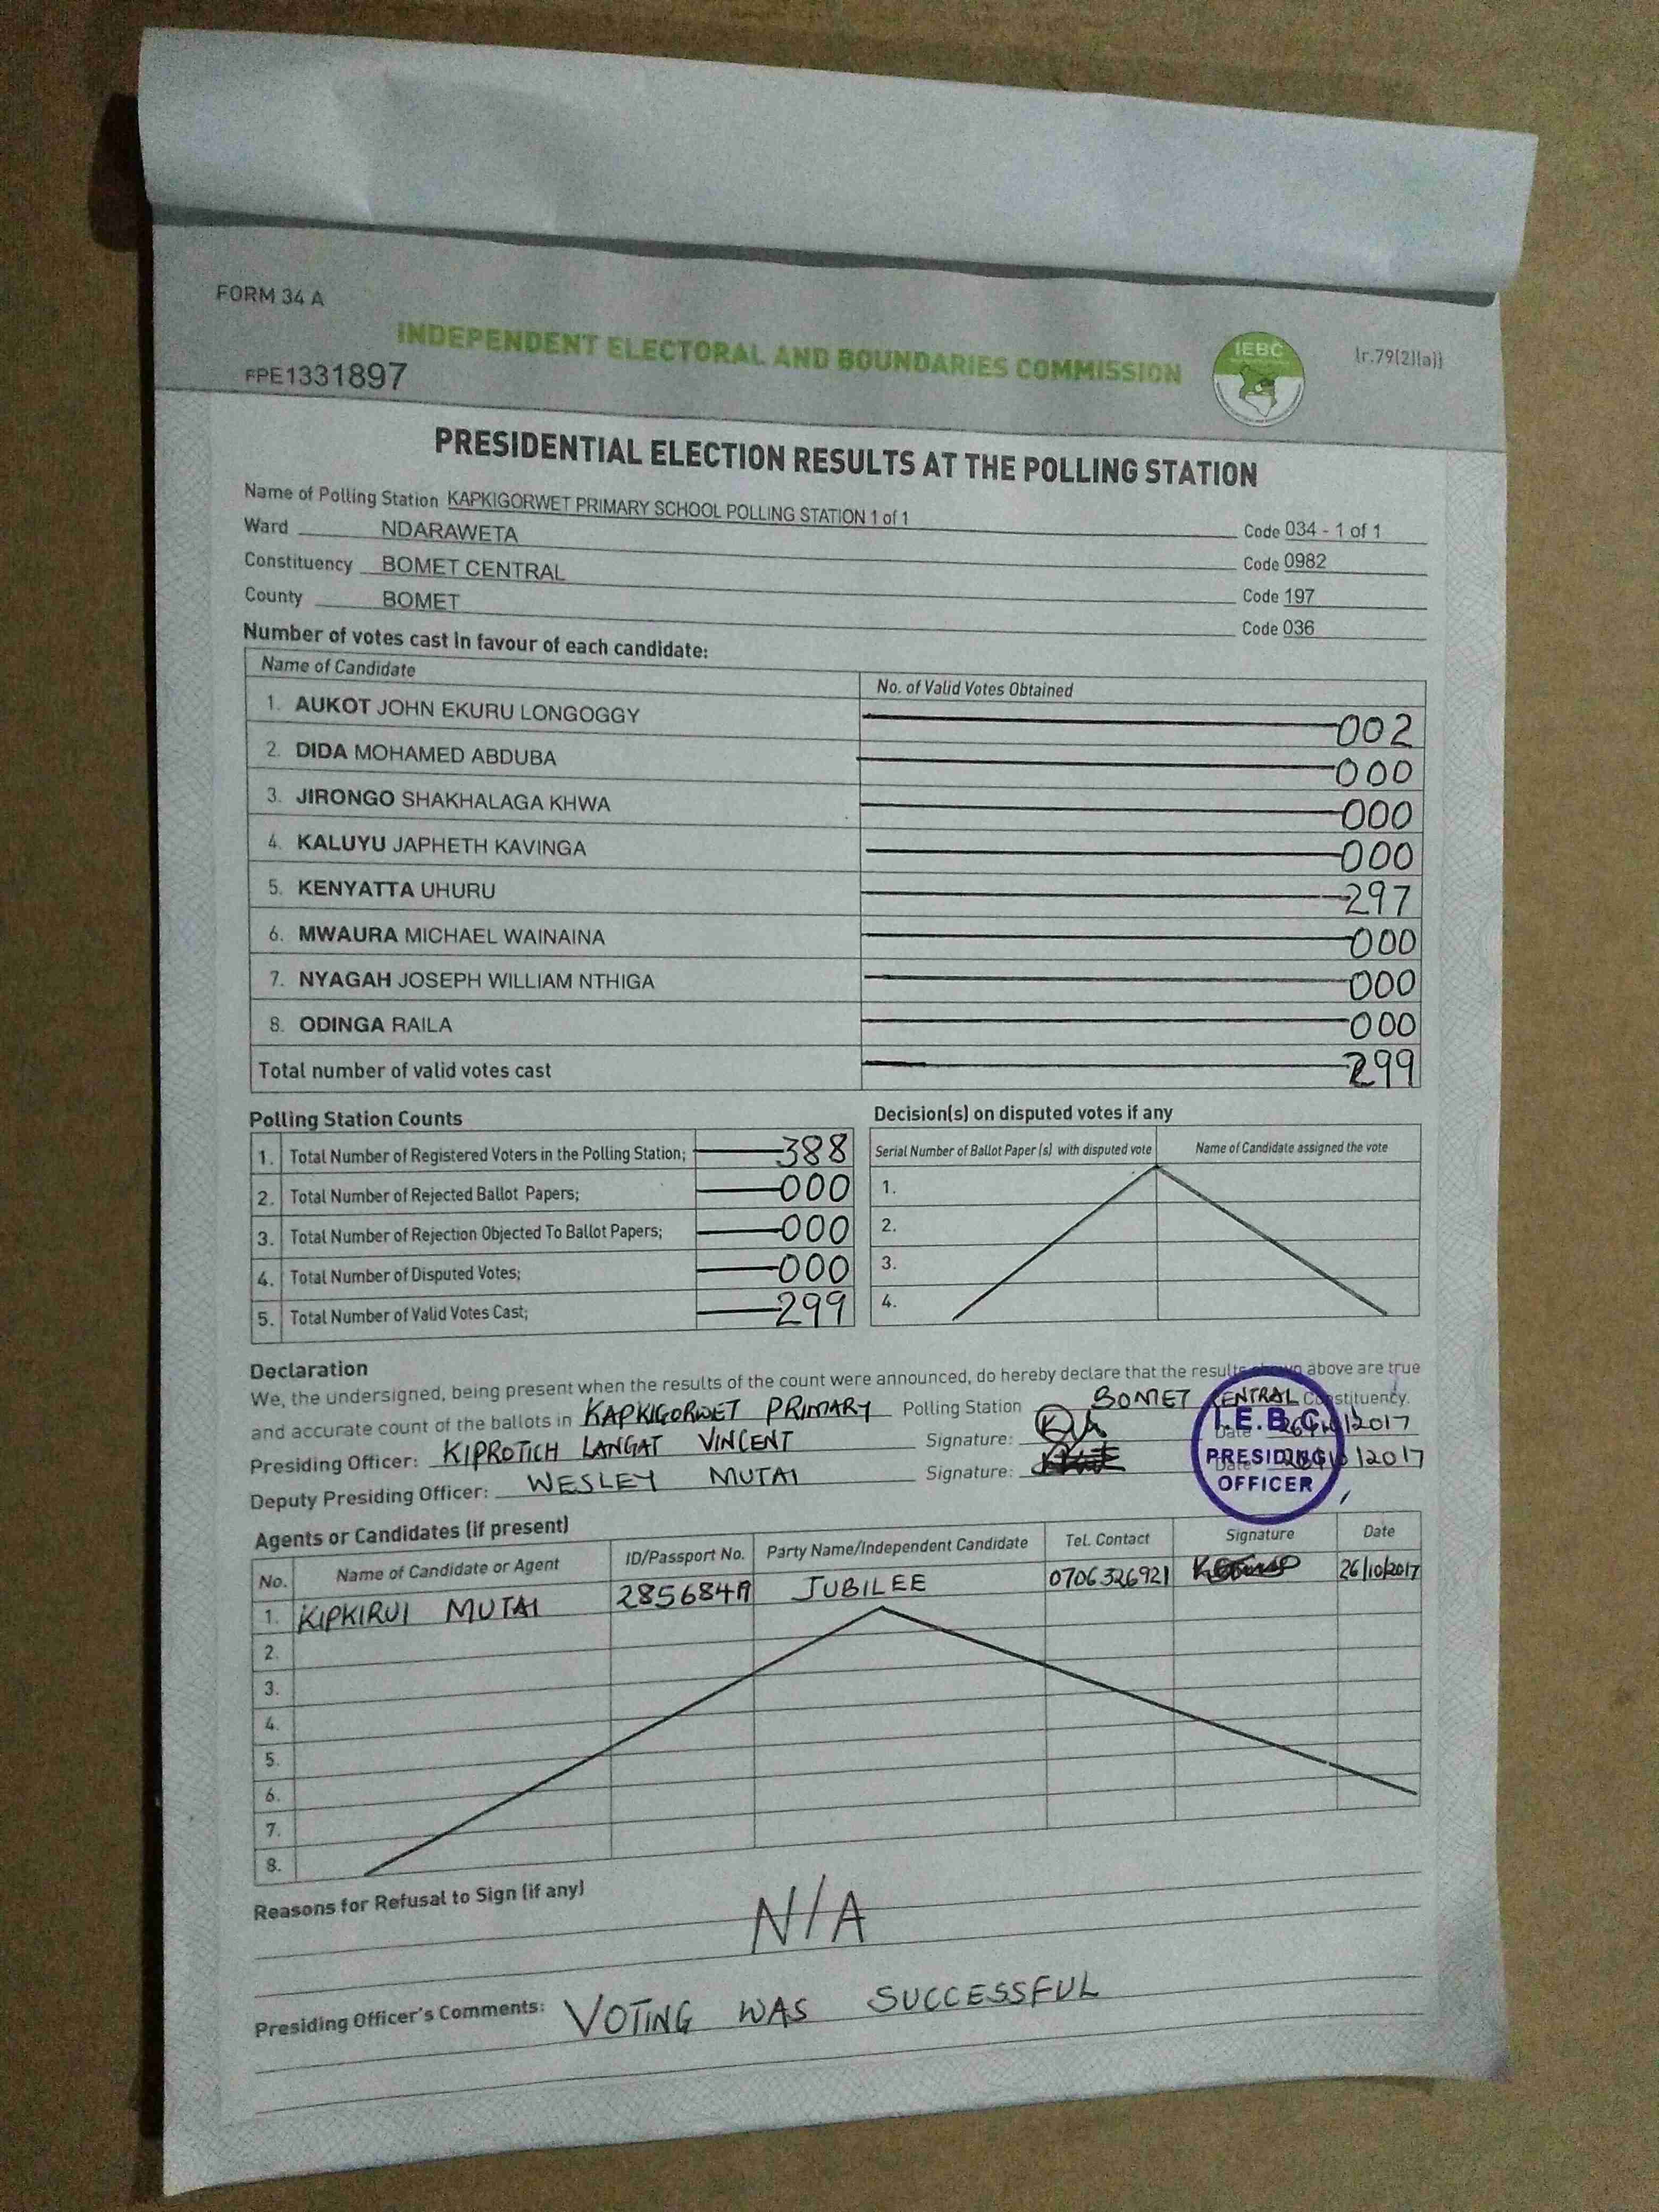 FORM 34 A
INDEPENDENT ELECTORAL AND BOUNDARIES COMMISSION
IEBC
(r.79(2)(a))
FPE1331897
PRESIDENTIAL ELECTION RESULTS AT THE POLLING STATION
Name of Polling Station KAPKIGORWET PRIMARY SCHOOL POLLING STATION 1 of 1 Code 034 - 1 of 1
Ward NDARAWETA Code 0982
Constituency BOMET CENTRAL Code 197
County BOMET Code 036
Number of votes cast in favour of each candidate:
Name of Candidate No. of Valid Votes Obtained
1. AUKOT JOHN EKURU LONGOGGY 002
2. DIDA MOHAMED ABDUBA 000
3. JIRONGO SHAKHALAGA KHWA 000
4. KALUYU JAPHETH KAVINGA 000
5. KENYATTA UHURU 297
6. MWAURA MICHAEL WAINAINA 000
7. NYAGAH JOSEPH WILLIAM NTHIGA 000
8. ODINGA RAILA 000
Total number of valid votes cast 299
Polling Station Counts
1. Total Number of Registered Voters in the Polling Station; 388
2. Total Number of Rejected Ballot Papers; 000
3. Total Number of Rejection Objected To Ballot Papers; 000
4. Total Number of Disputed Votes; 000
5. Total Number of Valid Votes Cast; 299
Decision(s) on disputed votes if any
Serial Number of Ballot Paper (s) with disputed vote Name of Candidate assigned the vote
1.
2.
3.
4.
Declaration
We, the undersigned, being present when the results of the count were announced, do hereby declare that the results shown above are true
and accurate count of the ballots in KAPKIGORWET PRIMARY Polling Station BOMET CENTRAL Constituency.
Presiding Officer: KIPROTICH LANGAT VINCENT Signature: Date 26/10/2017
Deputy Presiding Officer: WESLEY MUTAI Signature: Date 26/10/2017
I.E.B.C
PRESIDING
OFFICER
Agents or Candidates (if present)
No. Name of Candidate or Agent ID/Passport No. Party Name/Independent Candidate Tel. Contact Signature Date
1. KIPKIRUI MUTAI JUBILEE 0706326921 26/10/2017
2.
3.
4.
5.
6.
7.
8.
Reasons for Refusal to Sign (if any)
N/A
Presiding Officer's Comments: VOTING WAS SUCCESSFUL